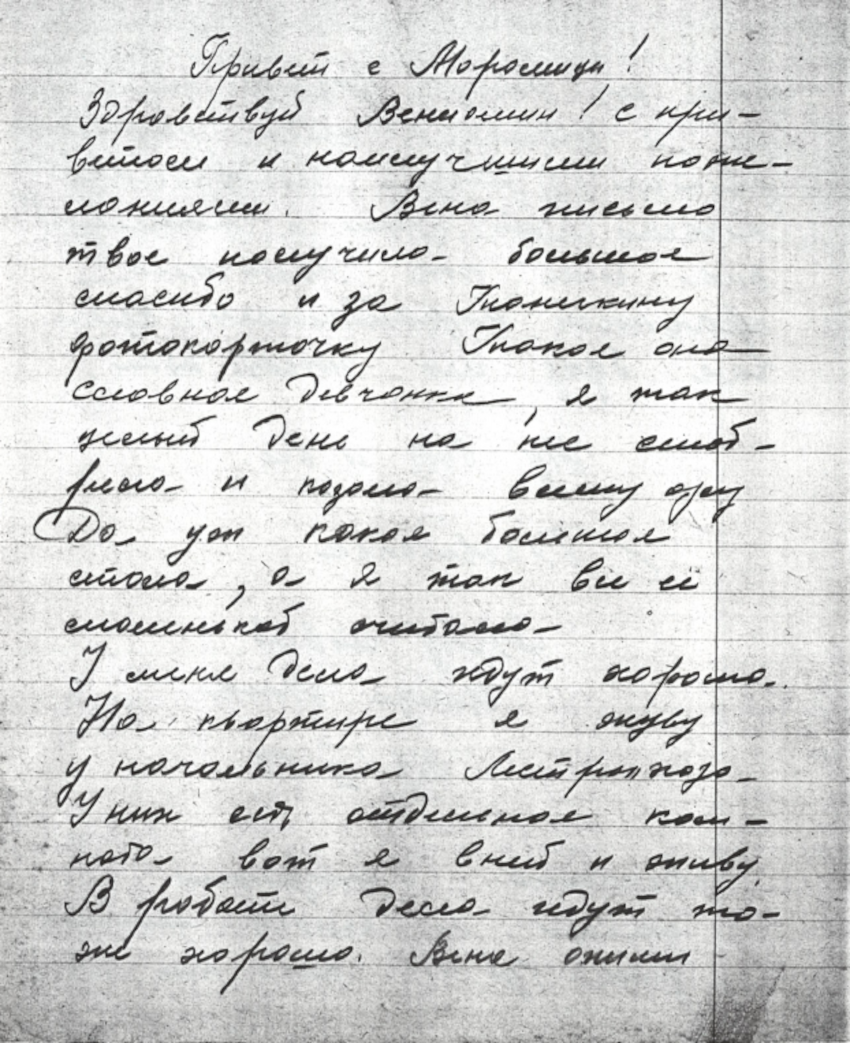 Привет с Моромицы!
Здравствуй Вениамин! с при-
ветом и наилучшими поже-
ланиями. Вена письмо
твое получила большое
спасибо и за Танечкину
фотокарточку Такая она
славная девчонка, я так
целый день на нее смот-
рела и казала всему ору
Да уж какая большая
стала, а я так все её
маленькой считала
У меня дела идут хорошо.
На квартире я живу
у начальника Лестранхоза
У них есть отдельная ком-
ната вот я в ней и живу
В работе дела идут то-
же хорошо. Веня опиши